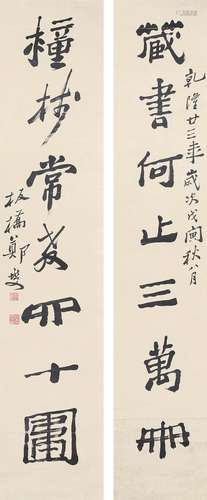 藏書何止三萬冊
乾隆廿三年歲次戊寅秋八月
種樹常教四十圍
板橋鄭燮